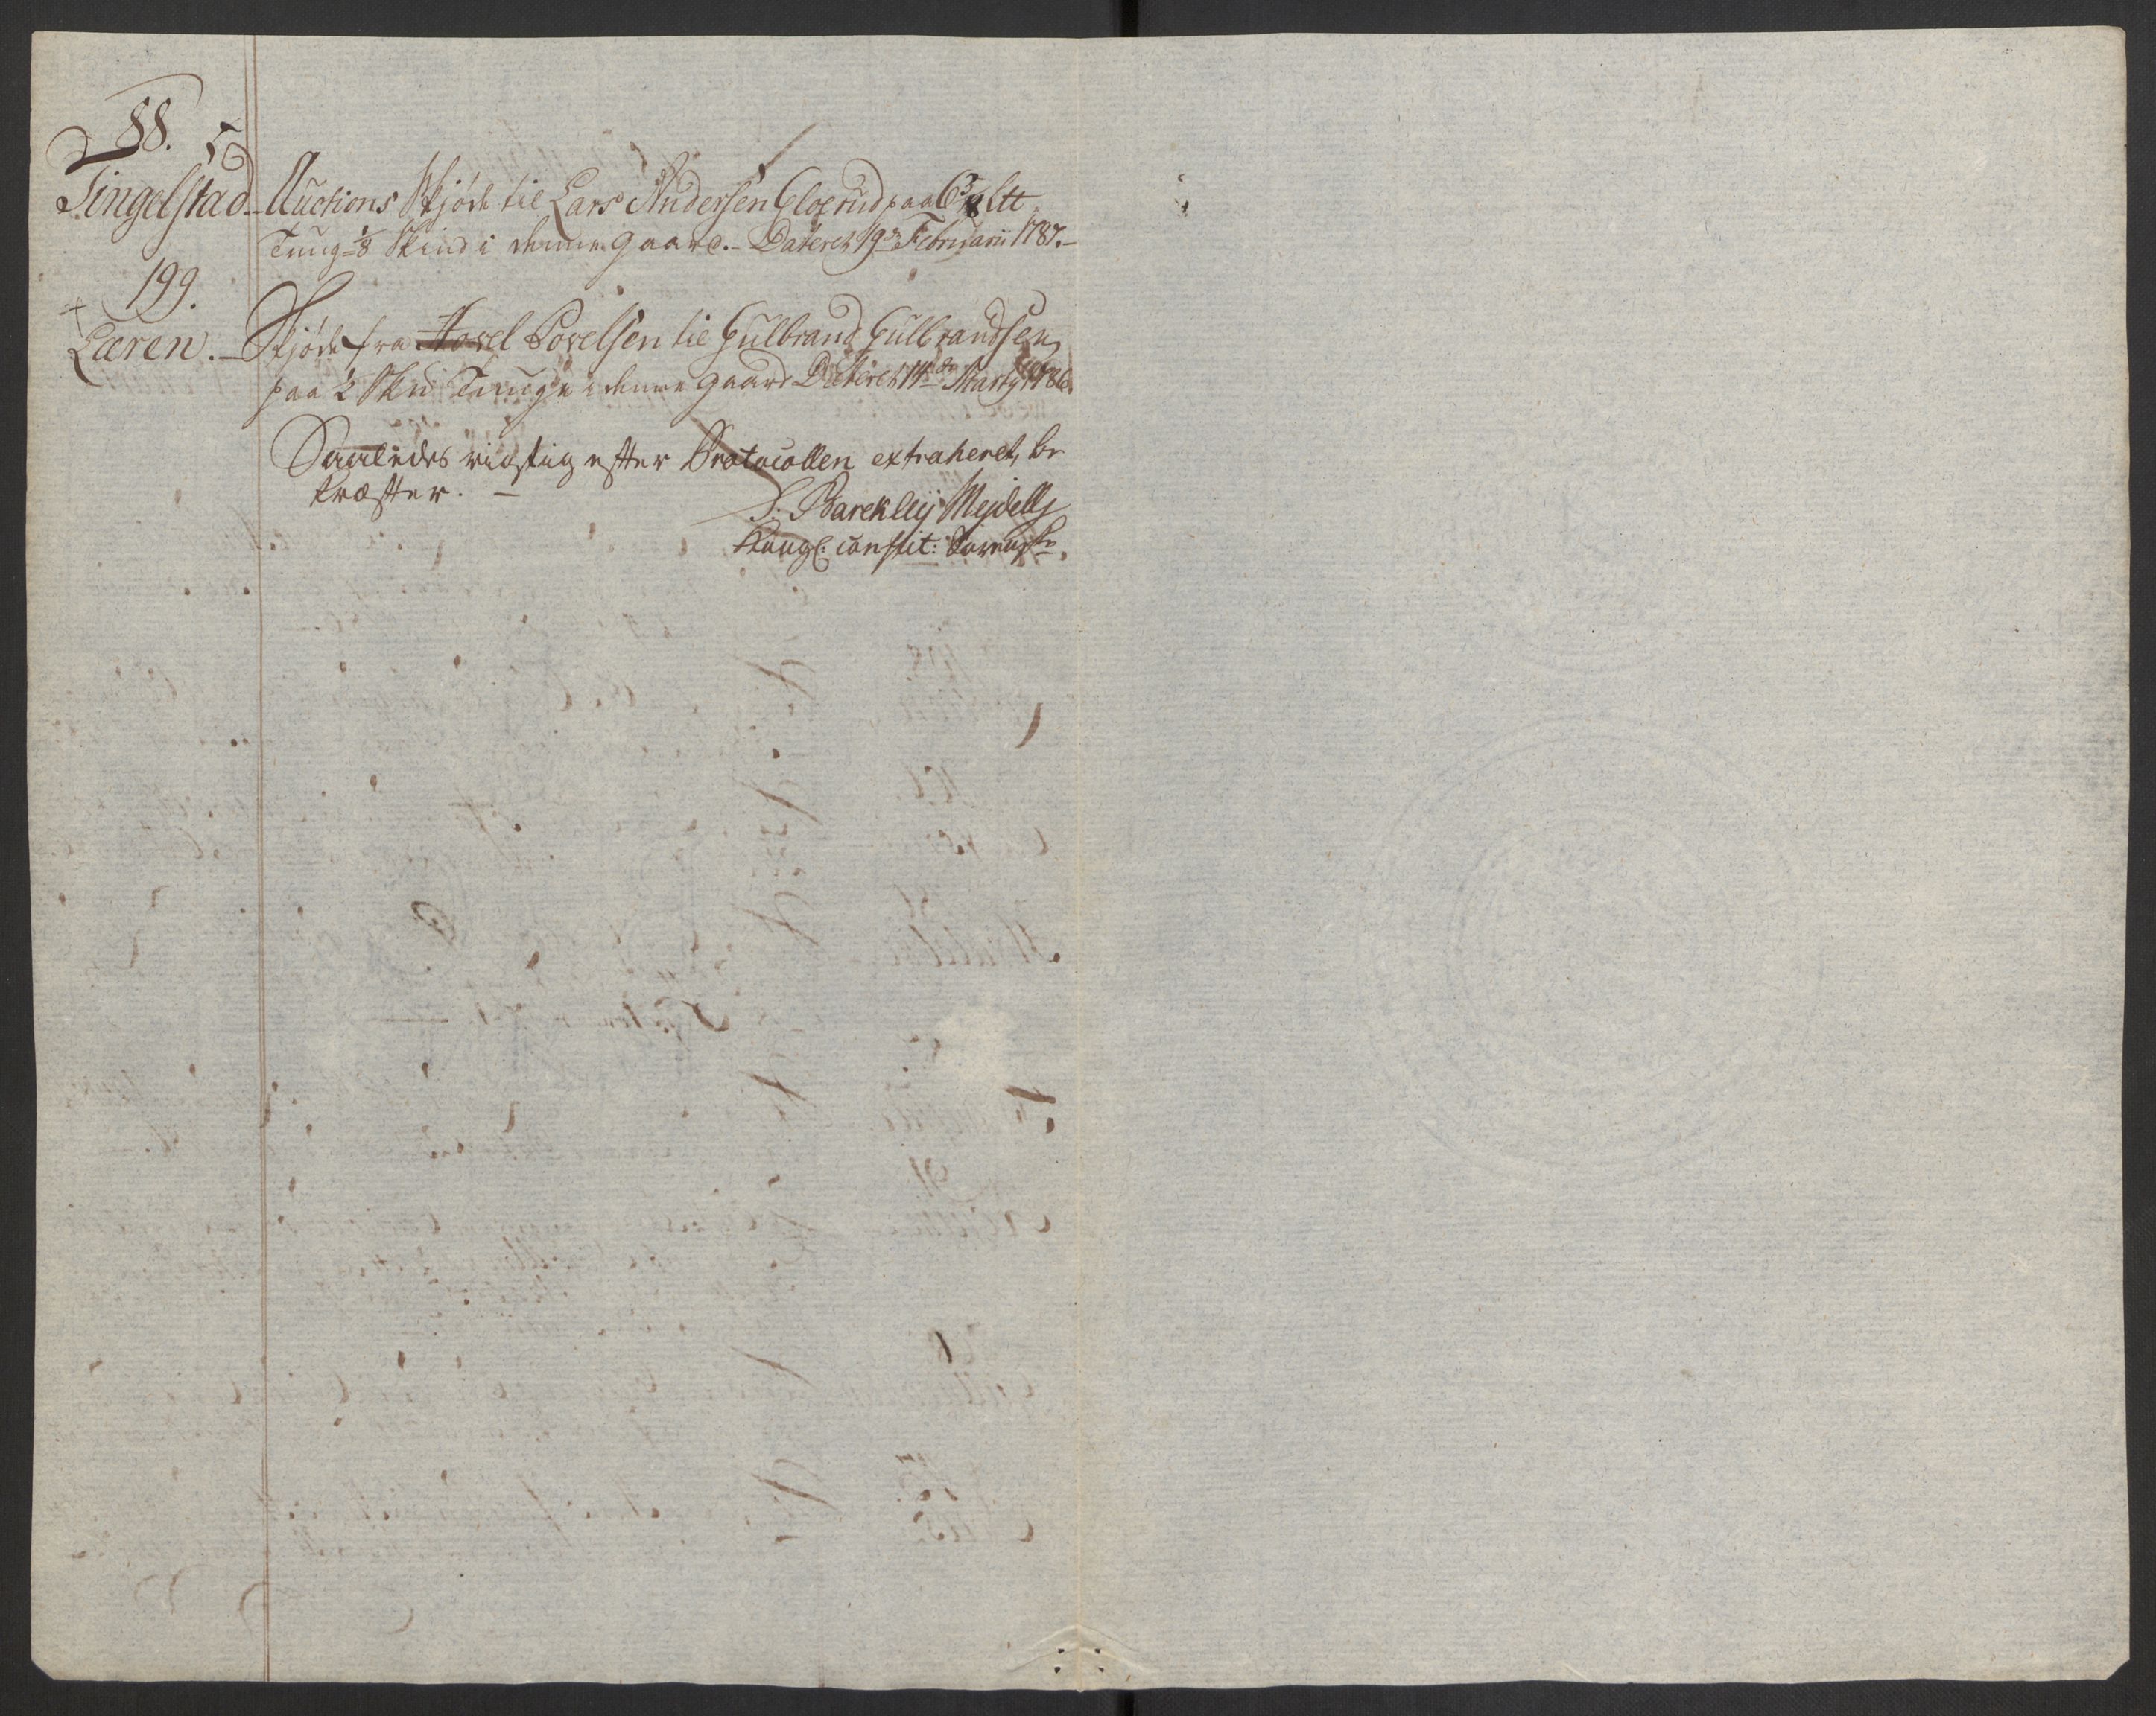 88.
Tingelstad – Auctions Skjøde til Lars Andersen Gloerud paa 6 3/8 Ltt
Tung 1/8 Skind i denne Gaard. – Dateret 19de Februarii 1787. –
199.
Læren. – Skjøde fra Povelsen til Gulbrand Gulbrandsen
paa 1/2 Skd Tunge i denne Gaard Dateret 14de Marty 1786.
Saaledes rigtig efter Protocollen extraheret, be
kræfter. –
S: Barckleÿ Mejdell
Kongl: constit: Sorensk.